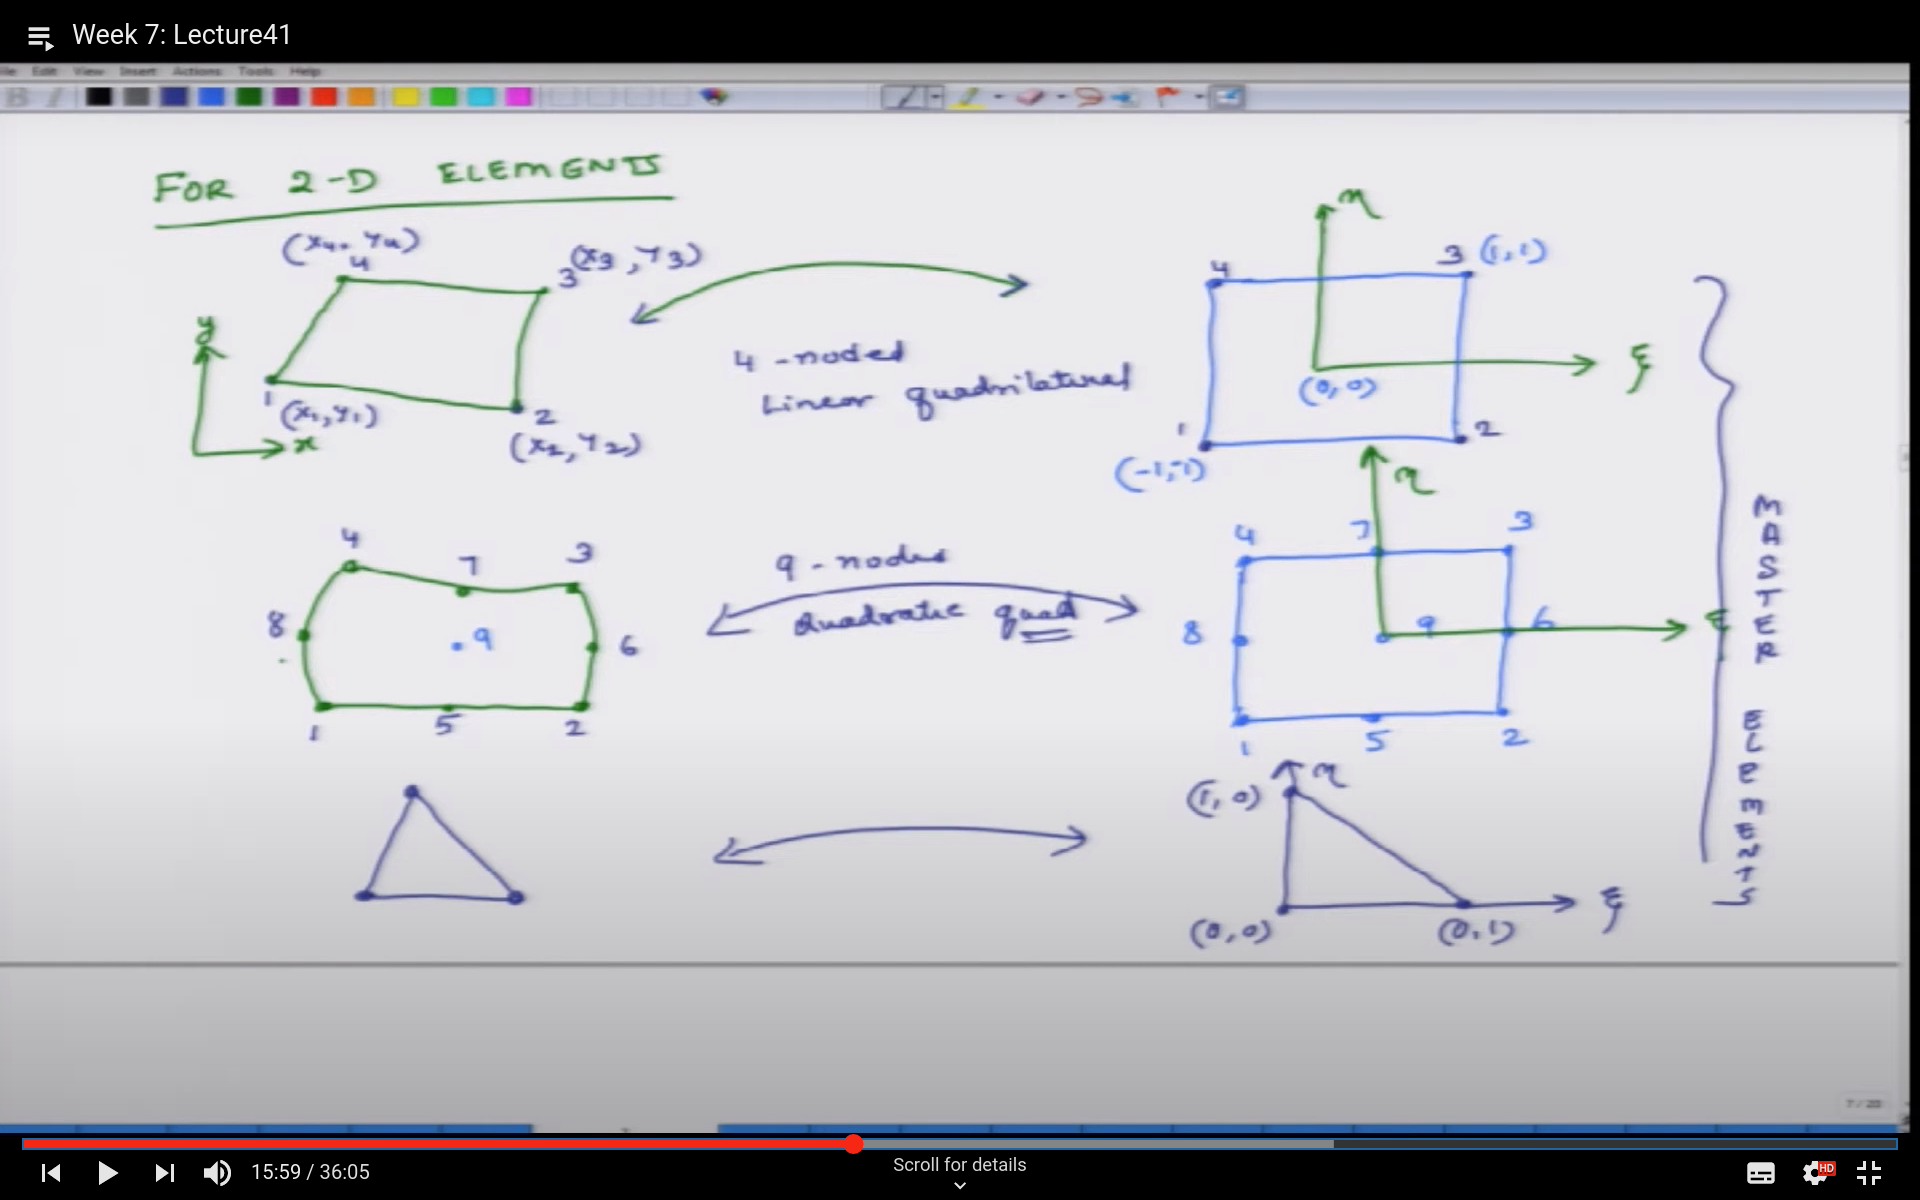 Week 7: Lecture41
File Edit View Insert Actions Tools Help
B I
FOR 2-D ELEMENTS
(x4, y4)
4
(x3, y3)
3
y
x
1
(x1, y1)
2
(x2, y2)
4-noded
Linear quadrilateral
η
4
3 (1,1)
ξ
(0,0)
1
2
(-1,-1)
4
7
3
8
9
6
1
5
2
9-nodes
Quadratic quad
η
4
7
3
8
9
6
ξ
1
5
2
(1,0)
η
(0,0)
(0,1)
ξ
MASTER ELEMENTS
7 / 20
15:59 / 36:05
Scroll for details
HD